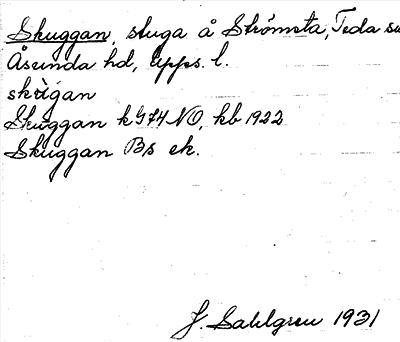 Skuggan, stuga å Strömsta, Teda
Åsunda hd, Upps. l.
skùgan
Skuggan k G74 NO, kb 1922
Skuggan Bs ek.
J. Sahlgren 1931